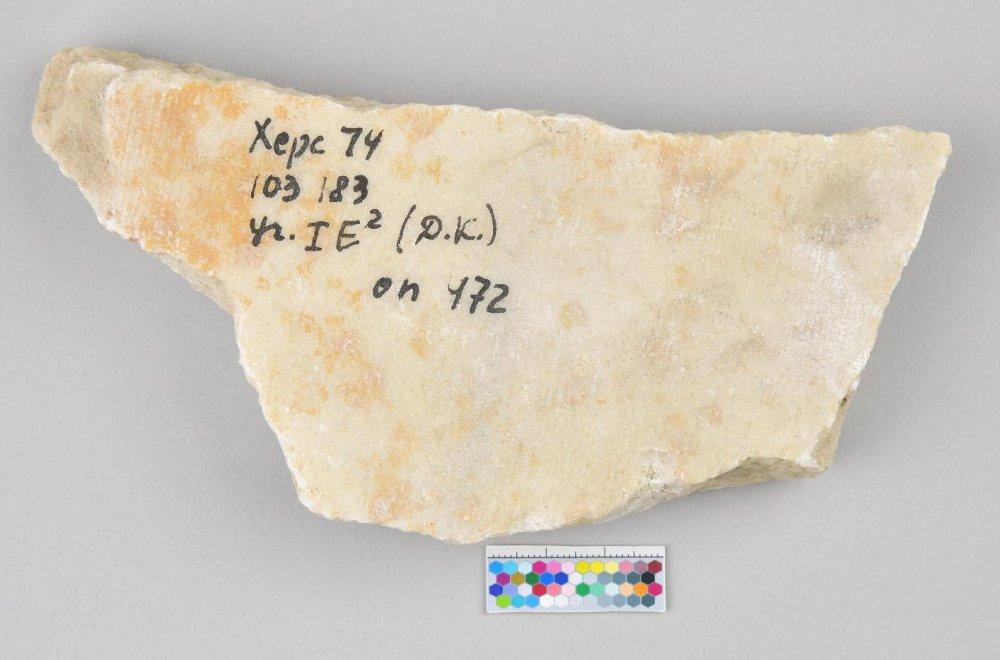 Херс 74
103 183
уч. I E² (Д.К.)
оп 472